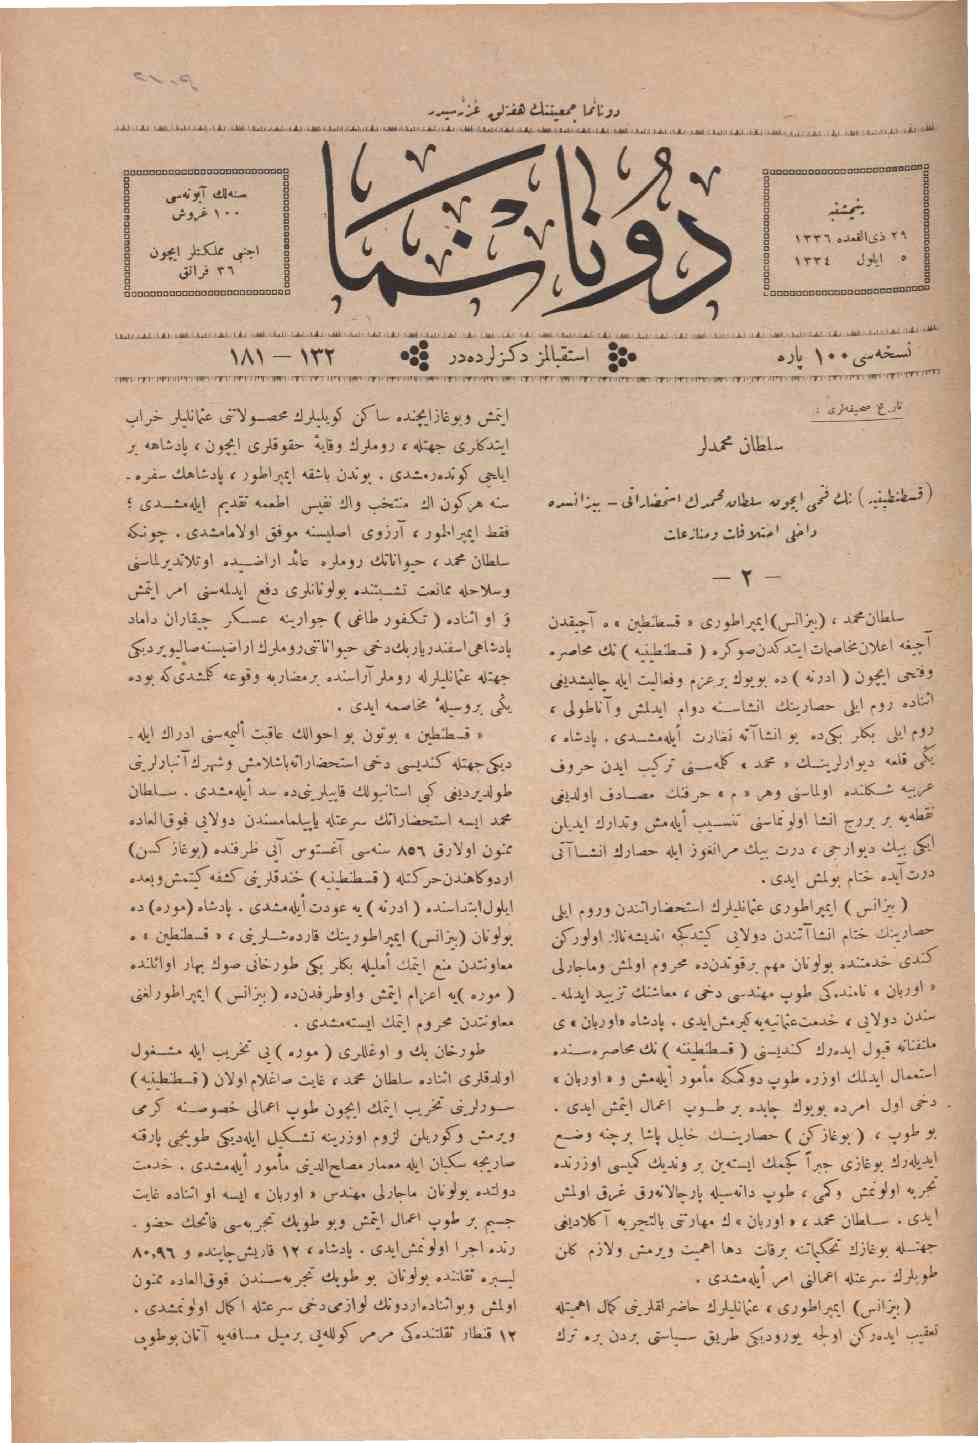 دونانما جمعیتنك هفته‌لق غزته‌سیدر
پنجشنبه
٢٩ ذی‌القعده ١٣٣٦
٥ ایلول ١٣٣٤
دونانما
سنه‌لك آبونه‌سی
١٠٠ غروش
اجنبی مملكتلر ایچون
٣٦ فرانق
نسخه‌سی ١٠٠ پاره
استقبالمز دكزلرده‌در
١٣٢ — ١٨١
تاریخ صحیفه‌لری :
سلطان محمدلر
(قسطنطینیه) نك فتحی ایچون سلطان محمدك استحضاراتی – بیزانسده
داخلی اختلافات و منازعات
— ٢ —
سلطان محمد ، (بیزانس) ایمپراطوری « قسطنطین » ه آچیقدن
آچیغه اعلان مخاصمات ایتدكدن صوكره ( قسطنطینیه ) نك محاصره
وفتحی ایچون ( ادرنه ) ده بویوك بر عزم وفعالیت ایله چالیشدیغی
اثناده روم ایلی حصارینك انشاسنه دوام ایدلمش وآناطولی ،
روم ایلی بكلر بكی‌ده بو انشاآته نظارت ایله‌مشدی . پادشاه ،
یكی قلعه دیوارلرینك « محمد » كلمه‌سنی تركیب ایدن حروف
عربیه شكلنده اولماسنی وهر « م » حرفنك مصادف اولدیغی
نقطه‌یه بر برج انشا اولونماسنی تنسیب ایله‌مش وتدارك ایدیلن
ایكی بیك دیوارجی ، درت بیك مرانغوز ایله حصارك انشاآتی
درت آیده ختام بولمش ایدی .
( بیزانس ) ایمپراطوری عثمانلیلرك استحضاراتندن وروم ایلی
حصارینك ختام انشاآتندن دولایی كیتدكجه اندیشه‌ناك اولوركن
كندی خدمتنده بولونان مهم بر قوتدن‌ده محروم اولمش وماجارلی
« اوربان » نامنده‌كی طوپ مهندسی دخی ، معاشنك تزیید ایدلمه‌ـ
سندن دولایی ، خدمت عثمانیه‌یه كیرمش ایدی . پادشاه «اوربان» ی
ملتفتانه قبول ایده‌رك كندیسنی ( قسطنطینیه ) نك محاصره‌سنده
استعمال ایدلمك اوزره طوپ دوكمكه مأمور ایله‌مش و « اوربان »
دخی اول امرده بویوك چاپده بر طوپ اعمال ایتمش ایدی .
بو طوپ ، ( بوغازكسن ) حصارینك خلیل پاشا برجنه وضع
ایدیله‌رك بوغازی جبراً كچمك ایسته‌ین بر وندیك كمیسی اوزرنده
تجربه اولونمش وكمی ، طوپ دانه‌سیله پارچالانه‌رق غرق اولمش
ایدی . سلطان محمد ، « اوربان » ك مهارتنی بالتجربه آكلادیغی
جهتله بوغازك تحكیماتنه برقات دها اهمیت ویرمش ولازم كلن
طوپلرك سرعتله اعمالنی امر ایله‌مشدی .
(بیزانس) ایمپراطوری ، عثمانلیلرك حاضرلقلرینی كمال اهمیتله
تعقیب ایده‌ركن اولجه یورودیكی طریق سیاستی بردن بره ترك
ایتمش وبوغازایچنده ساكن كویلیلرك محصولاتنی عثمانلیلر خراب
ایتدكلری جهتله ، روملرك وقایهٔ حقوقلری ایچون ، پادشاهه بر
ایلچی كوندرمشدی . بوندن باشقه ایمپراطور ، پادشاهك سفره‌ـ
سنه هركون اك منتخب واك نفیس اطعمه تقدیم ایله‌مشدی ؛
فقط ایمپراطور ، آرزوی اصلیسنه موفق اولامامشدی . چونكه
سلطان محمد ، حیواناتك روملره عائد اراضیده اوتلاتدیرلماسنی
وسلاحله ممانعت تشبثنده بولونانلری دفع ایدلمه‌سنی امر ایتمش
و او اثناده ( تكفور طاغی ) جوارینه عسكر چیقاران داماد
پادشاهی اسفندیار بك دخی حیواناتنی روملرك اراضیسنه صالیویردیكی
جهتله عثمانلیلرله روملر آراسنده بر مضاربه وقوعه كلمشدی كه بوده
یكی بر وسیلهٔ مخاصمه ایدی .
« قسطنطین » بوتون بو احوالك عاقبت الیمه‌سنی ادراك ایله‌ـ
دیكی جهتله كندیسی دخی استحضاراته باشلامش وشهرك آنبارلرینی
طولدیردیغی كبی استانبولك قاپیلرینی‌ده سد ایله‌مشدی . سلطان
محمد ایسه استحضاراتك سرعتله یاپیلمامسندن دولایی فوق‌العاده
ممنون اولارق ٨٥٦ سنه‌سی آغستوس آیی ظرفنده (بوغازكسن)
اردوكاهندن حركتله ( قسطنطینیه ) خندقلرینی كشفه كیتمش وبعده
ایلول ابتداسنده ( ادرنه ) یه عودت ایله‌مشدی . پادشاه (موره) ده
بولونان (بیزانس) ایمپراطورینك قارده‌شلرینی ، « قسطنطین » ه
معاونتدن منع ایتمك املیله بكلر بكی طورخانی صوك بهار اوائلنده
( موره ) یه اعزام ایتمش واو طرفدن‌ده ( بیزانس ) ایمپراطورلغنی
معاونتدن محروم ایتمك ایسته‌مشدی .
طورخان بك و اوغللری ( موره ) یی تخریب ایله مشغول
اولدقلری اثناده سلطان محمد ، غایت صاغلام اولان ( قسطنطینیه )
سورلرینی تخریب ایتمك ایچون طوپ اعمالی خصوصنه كرمی
ویرمش وكوریلن لزوم اوزرینه تشكیل ایله‌دیكی طوپجی پارقنه
صاریجه سكبان ایله معمار مصلح‌الدینی مأمور ایله‌مشدی . خدمت
دولتده بولونان ماجارلی مهندس « اوربان » ایسه او اثناده غایت
جسیم بر طوپ اعمال ایتمش وبو طوپك تجربه‌سی فاتحك حضوـ
رنده اجرا اولونمش ایدی . پادشاه ، ١٢ قاریش چاپنده و ٨٠,٩٦
لیبره ثقلتنده بولونان بو طوپك تجربه‌سندن فوق‌العاده ممنون
اولمش وبو اثناده اردونك لوازمی دخی سرعتله اكمال اولونمشدی .
١٢ قنطار ثقلتنده‌كی مرمر كولله‌یی بر میل مسافه‌یه آتان بو طوپی